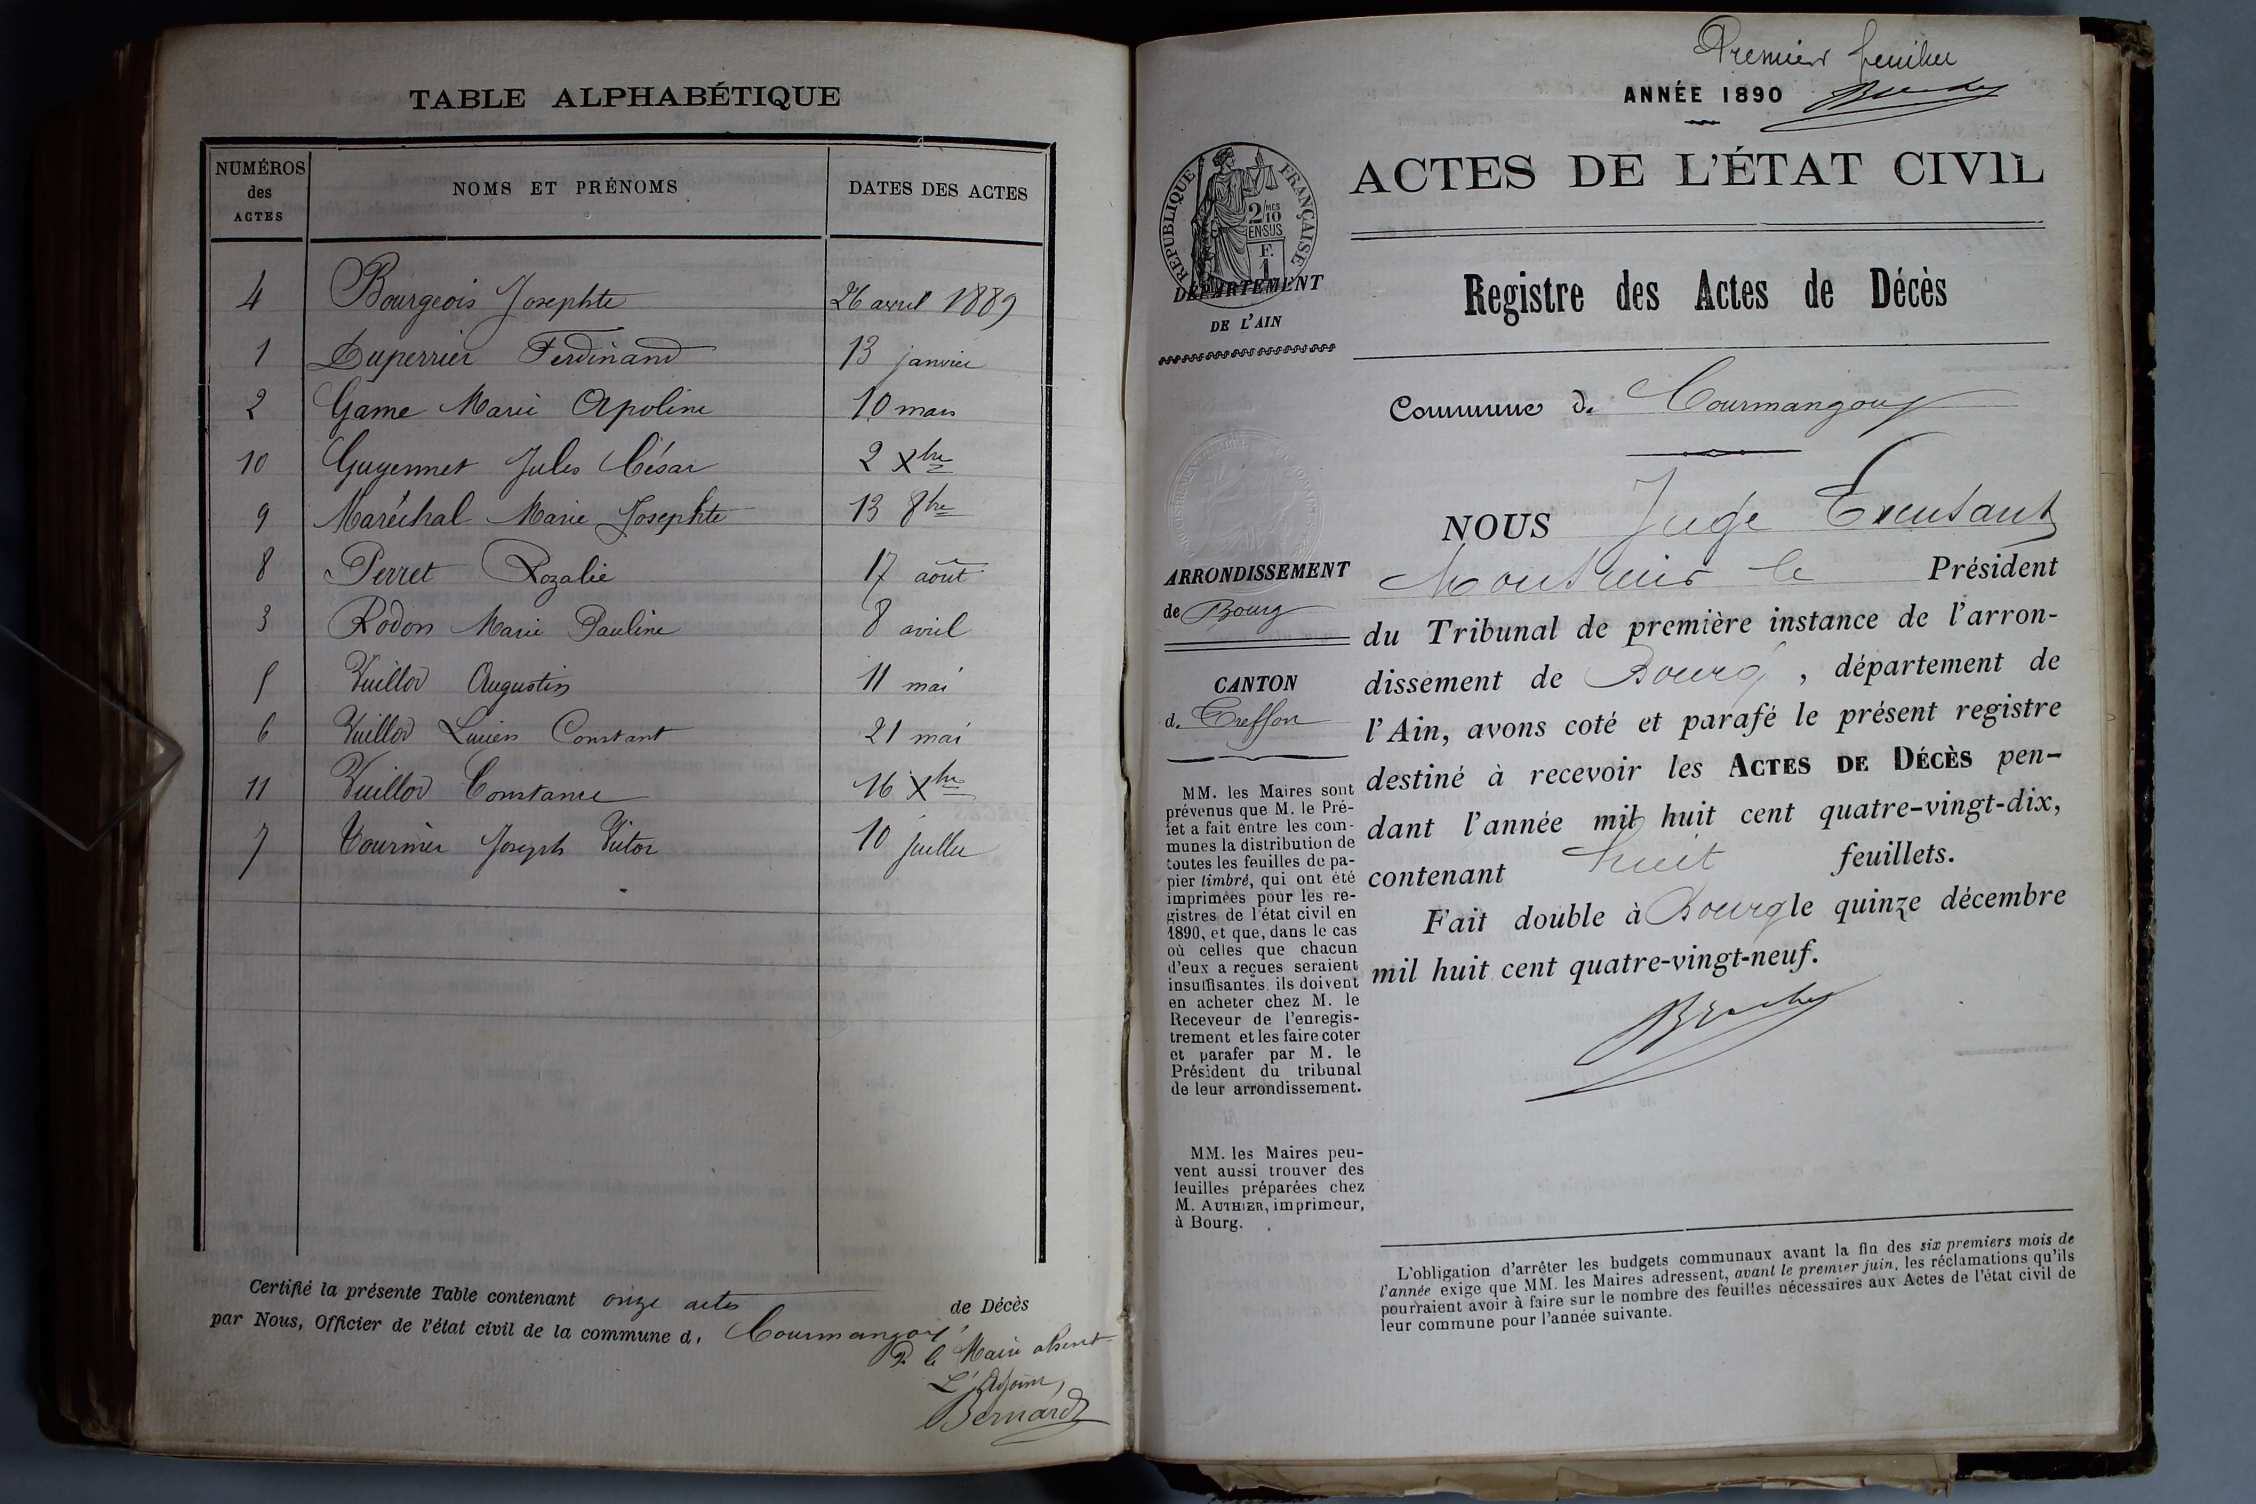 TABLE ALPHABÉTIQUE
NUMÉROS des ACTES
NOMS ET PRÉNOMS
DATES DES ACTES
4 Bourgeois Josephte 26 avril 1889
1 Duperrier Ferdinand 13 janvier
2 Game Marie Apoline 10 mars
10 Guyennet Jules César 2 Xbre
9 Maréchal Marie Josephte 13 8bre
8 Perret Rozalie 17 août
3 Rodon Marie Pauline 8 avril
5 Vuillod Augustin 11 mai
6 Vuillod Lucien Constant 21 mai
11 Vuillod Constance 16 Xbre
7 Tournier Joseph Victor 10 juillet
Certifié la présente Table contenant onze actes de Décès
par Nous, Officier de l'état civil de la commune d, Courmangoux,
P. le Maire absent
L'Adjoint,
Bernard
Premier feuillet
ANNÉE 1890
ACTES DE L'ÉTAT CIVIL
REPUBLIQUE FRANÇAISE
2/10 mes
EN SUS
F.
1
DÉPARTEMENT
DE L'AIN
Registre des Actes de Décès
Commune de Courmangoux
NOUS Juge Excusant
Monsieur le Président
du Tribunal de première instance de l'arron-
dissement de Bourg, département de
l'Ain, avons coté et parafé le présent registre
destiné à recevoir les ACTES DE DÉCÈS pen-
dant l'année mil huit cent quatre-vingt-dix,
contenant huit feuillets.
Fait double à Bourg le quinze décembre
mil huit cent quatre-vingt-neuf.
ARRONDISSEMENT
de Bourg
CANTON
d. Treffort
MM. les Maires sont
prévenus que M. le Pré-
fet a fait entre les com-
munes la distribution de
toutes les feuilles de pa-
pier timbré, qui ont été
imprimées pour les re-
gistres de l'état civil en
1890, et que, dans le cas
où celles que chacun
d'eux a reçues seraient
insuffisantes, ils doivent
en acheter chez M. le
Receveur de l'enregis-
trement et les faire coter
et parafer par M. le
Président du tribunal
de leur arrondissement.
MM. les Maires peu-
vent aussi trouver des
feuilles préparées chez
M. AUTHIER, imprimeur,
à Bourg.
L'obligation d'arrêter les budgets communaux avant la fin des six premiers mois de
l'année exige que MM. les Maires adressent, avant le premier juin, les réclamations qu'ils
pourraient avoir à faire sur le nombre des feuilles nécessaires aux Actes de l'état civil de
leur commune pour l'année suivante.